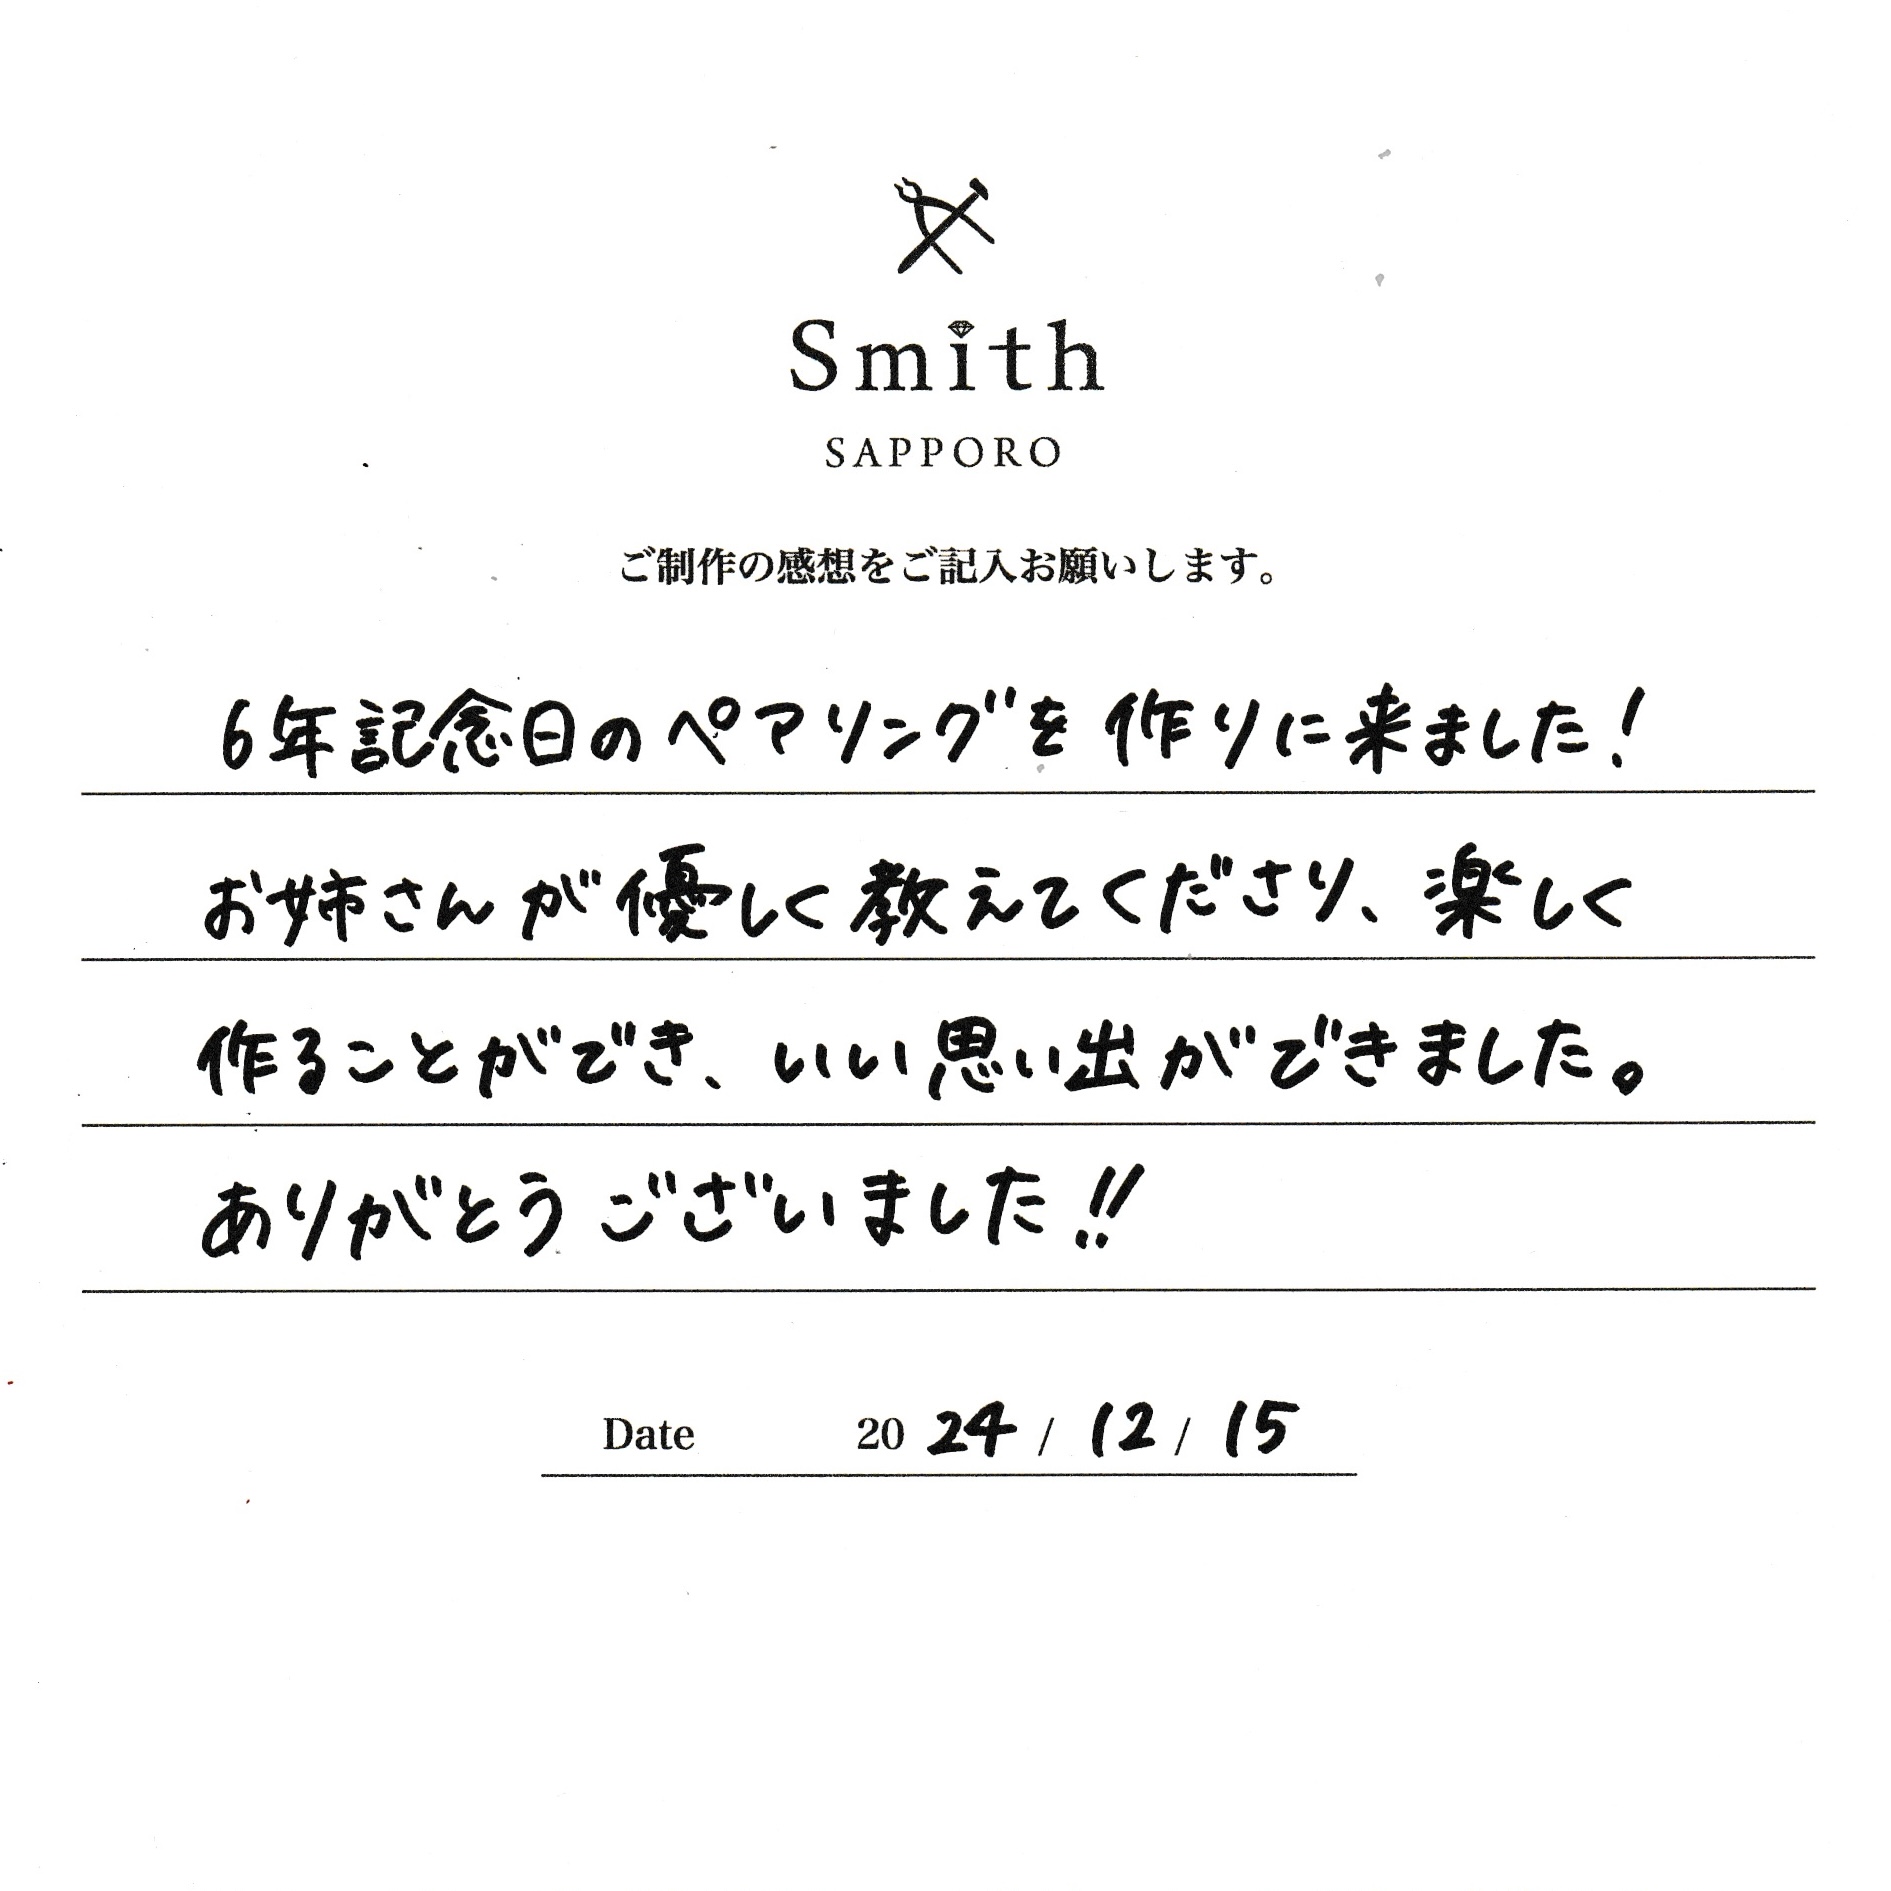 Smith
SAPPORO
ご制作の感想をご記入お願いします。
6年記念日のペアリングを作りに来ました!
お姉さんが優しく教えてくださり、楽しく
作ることができ、いい思い出ができました。
ありがとうございました!!
Date 2024 / 12 / 15